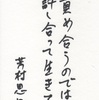 責め合うのでは
許し合って生きて
芳村思風